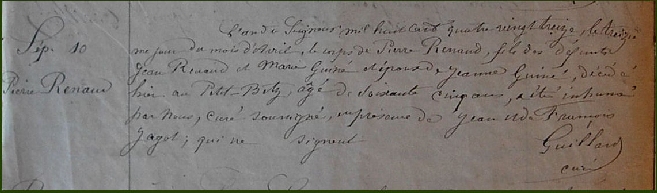 L'an du Seigneur mil huit cent quatre vingt treize, le treizie
Sép. 10
me jour du mois d'avril, le corps de Pierre Renaud, fils des défunts
Jean Renaud et Marie Guiné et époux de Jeanne Guiné, décédé
Pierre Renaud
hier au Petit-Betz, agé de soixante cinq ans, a été inhumé
par Nous, curé soussigné, en présence de Jean et de François
Jagot; qui ne signent
Guillard
curé